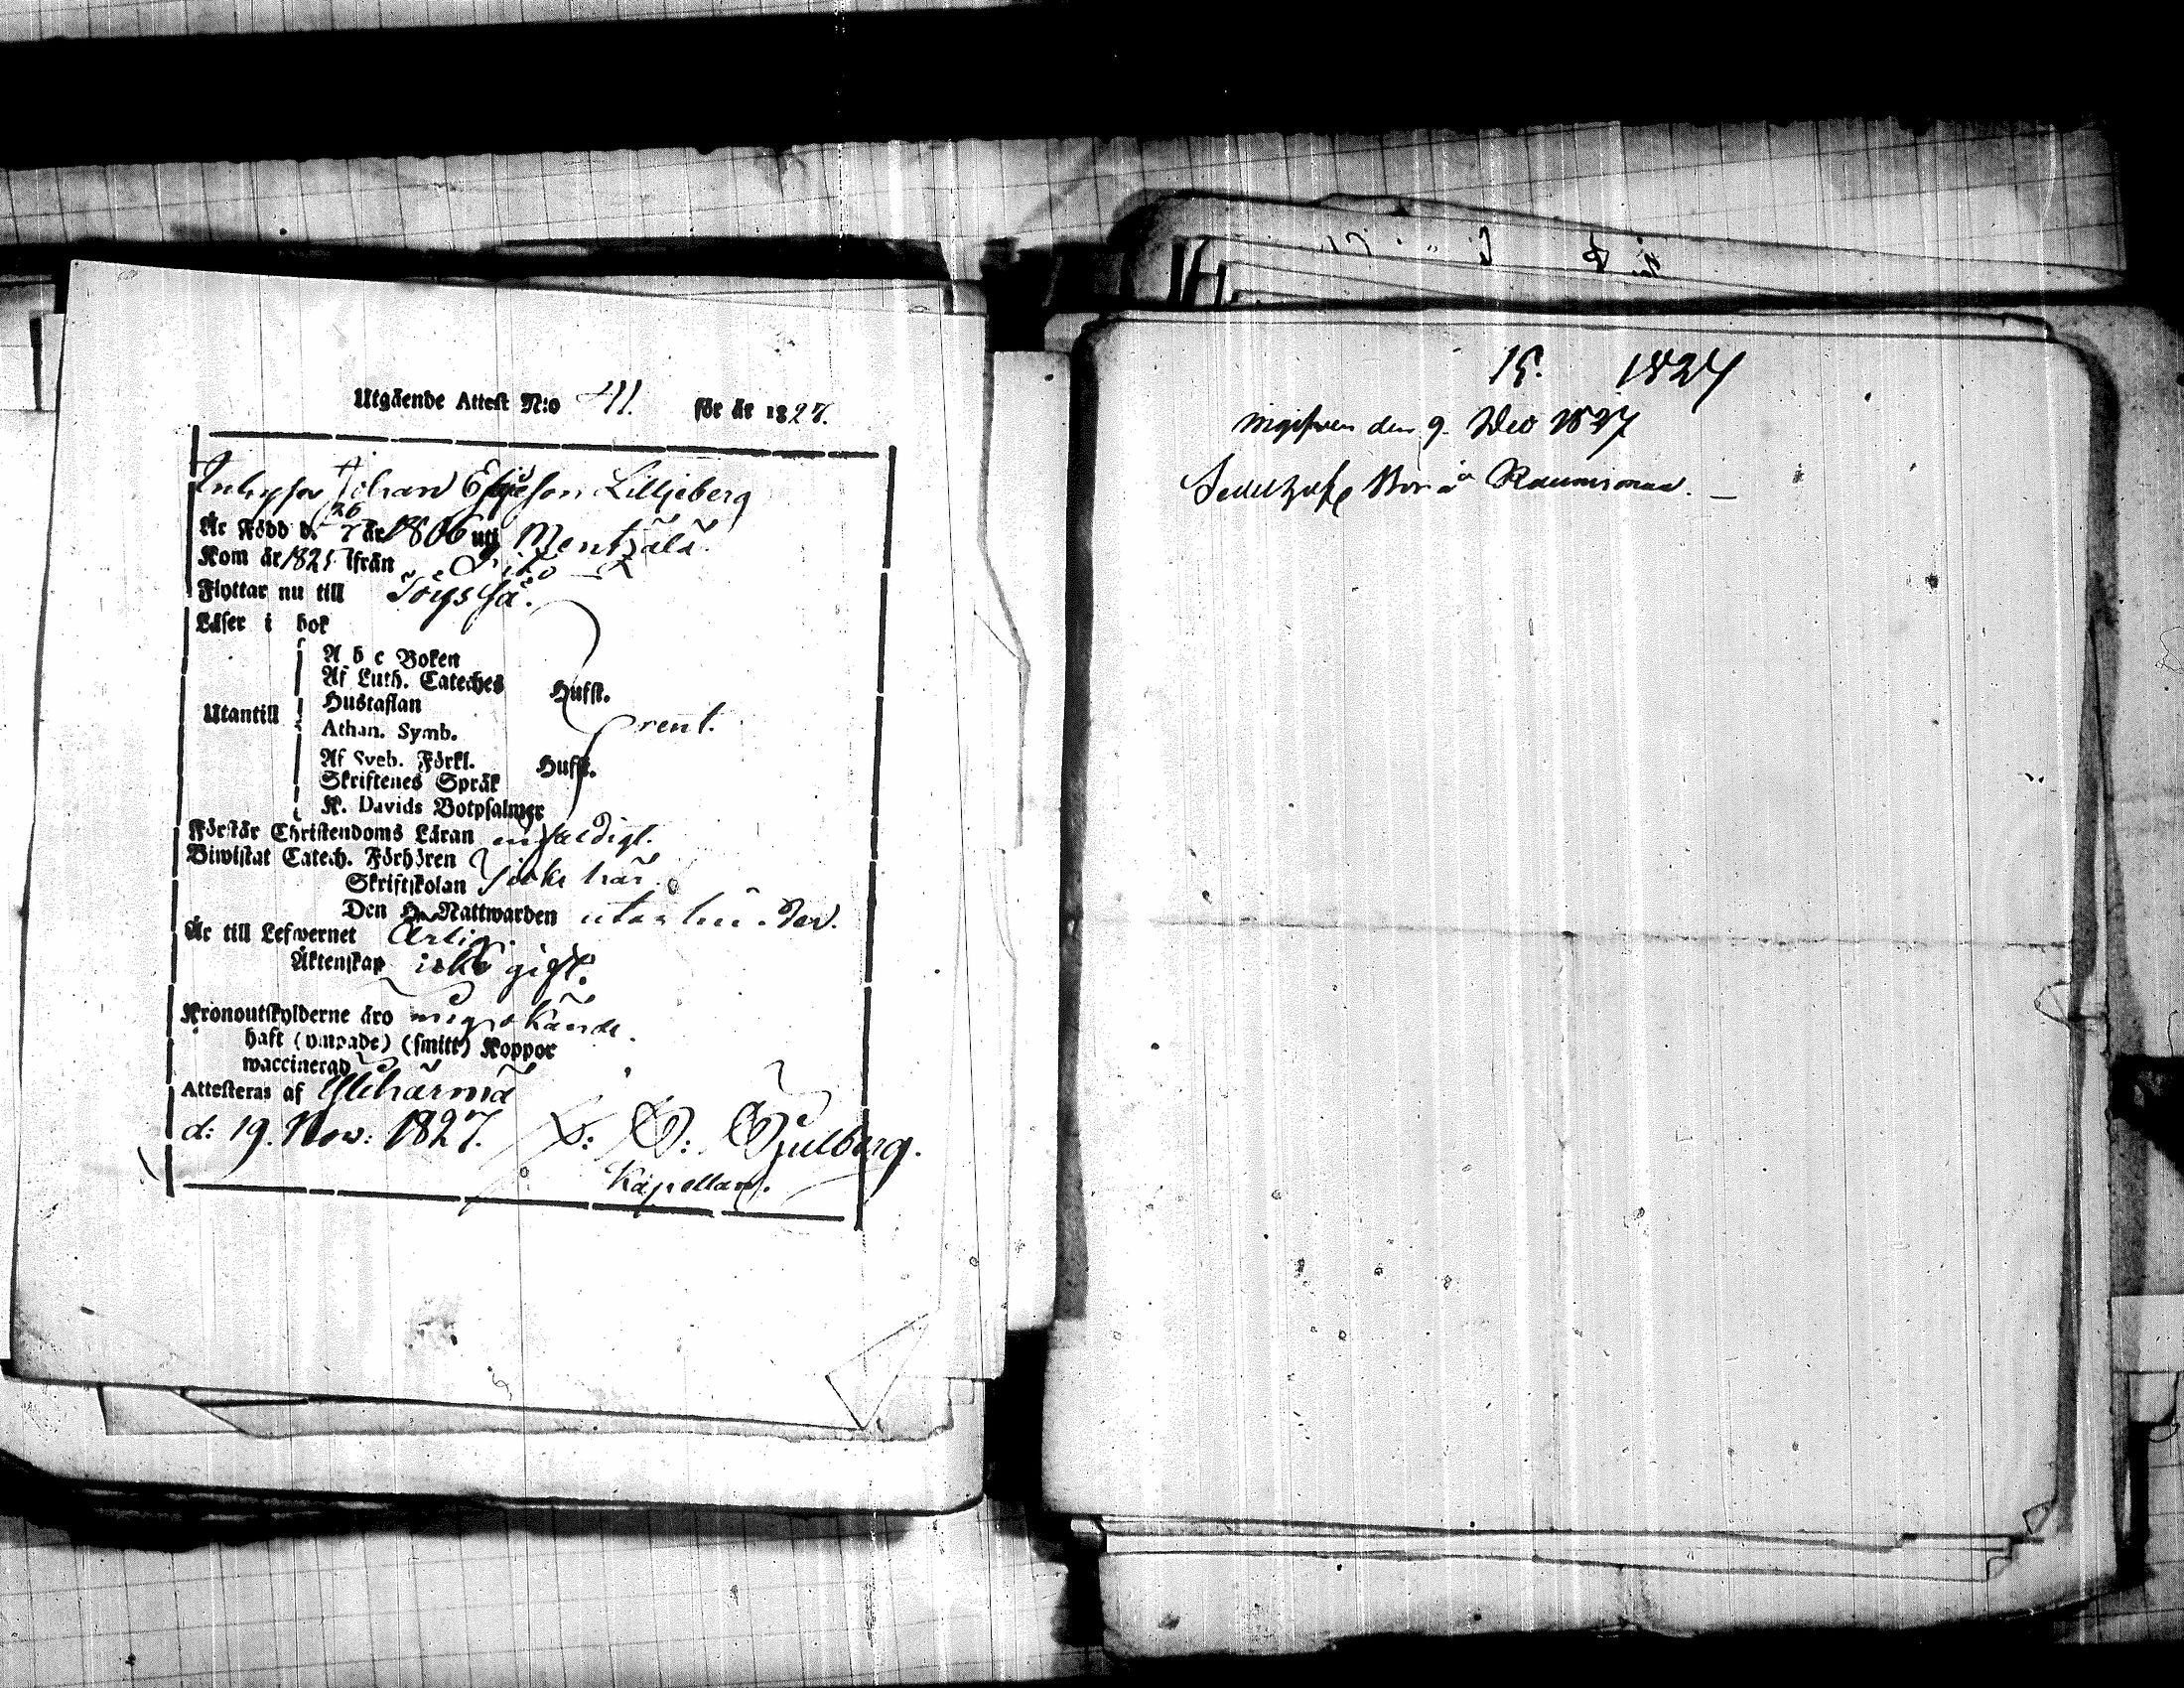 Utgående Attest N:o 411. för år 1827.
Johan Lilljeberg
Är Född d. 26/7 år 1806 uti Mentzälä
Kom år 1825 ifrån Dito
Flyttar nu till Töyssä.
Läser i bok
A b c Boken
Af Luth. Cateches Hufst.
Hustaflan
Utantill
Athan. Symb. rent.
Af Sveb. Förkl. Hufst.
Skriftenes Språk
K. Davids Botpsalmer
Förstår Christendoms Läran enfaldigt.
Biwistat Catech. Förhören
Skriftskolan icke här
Den H. Nattwarden utan hinder.
Är till Lefwernet Ärlig.
Äktenskap icke gift.
Kronoutskylderne äro mig okände.
haft (vaccinerade) (smitt) Koppor
waccinerad
Attesteras af Ylihärmä
d: 19. Nov: 1827. Gyllberg.
Kapellan.
15. 1827
ingifven den 9. Dec 1827